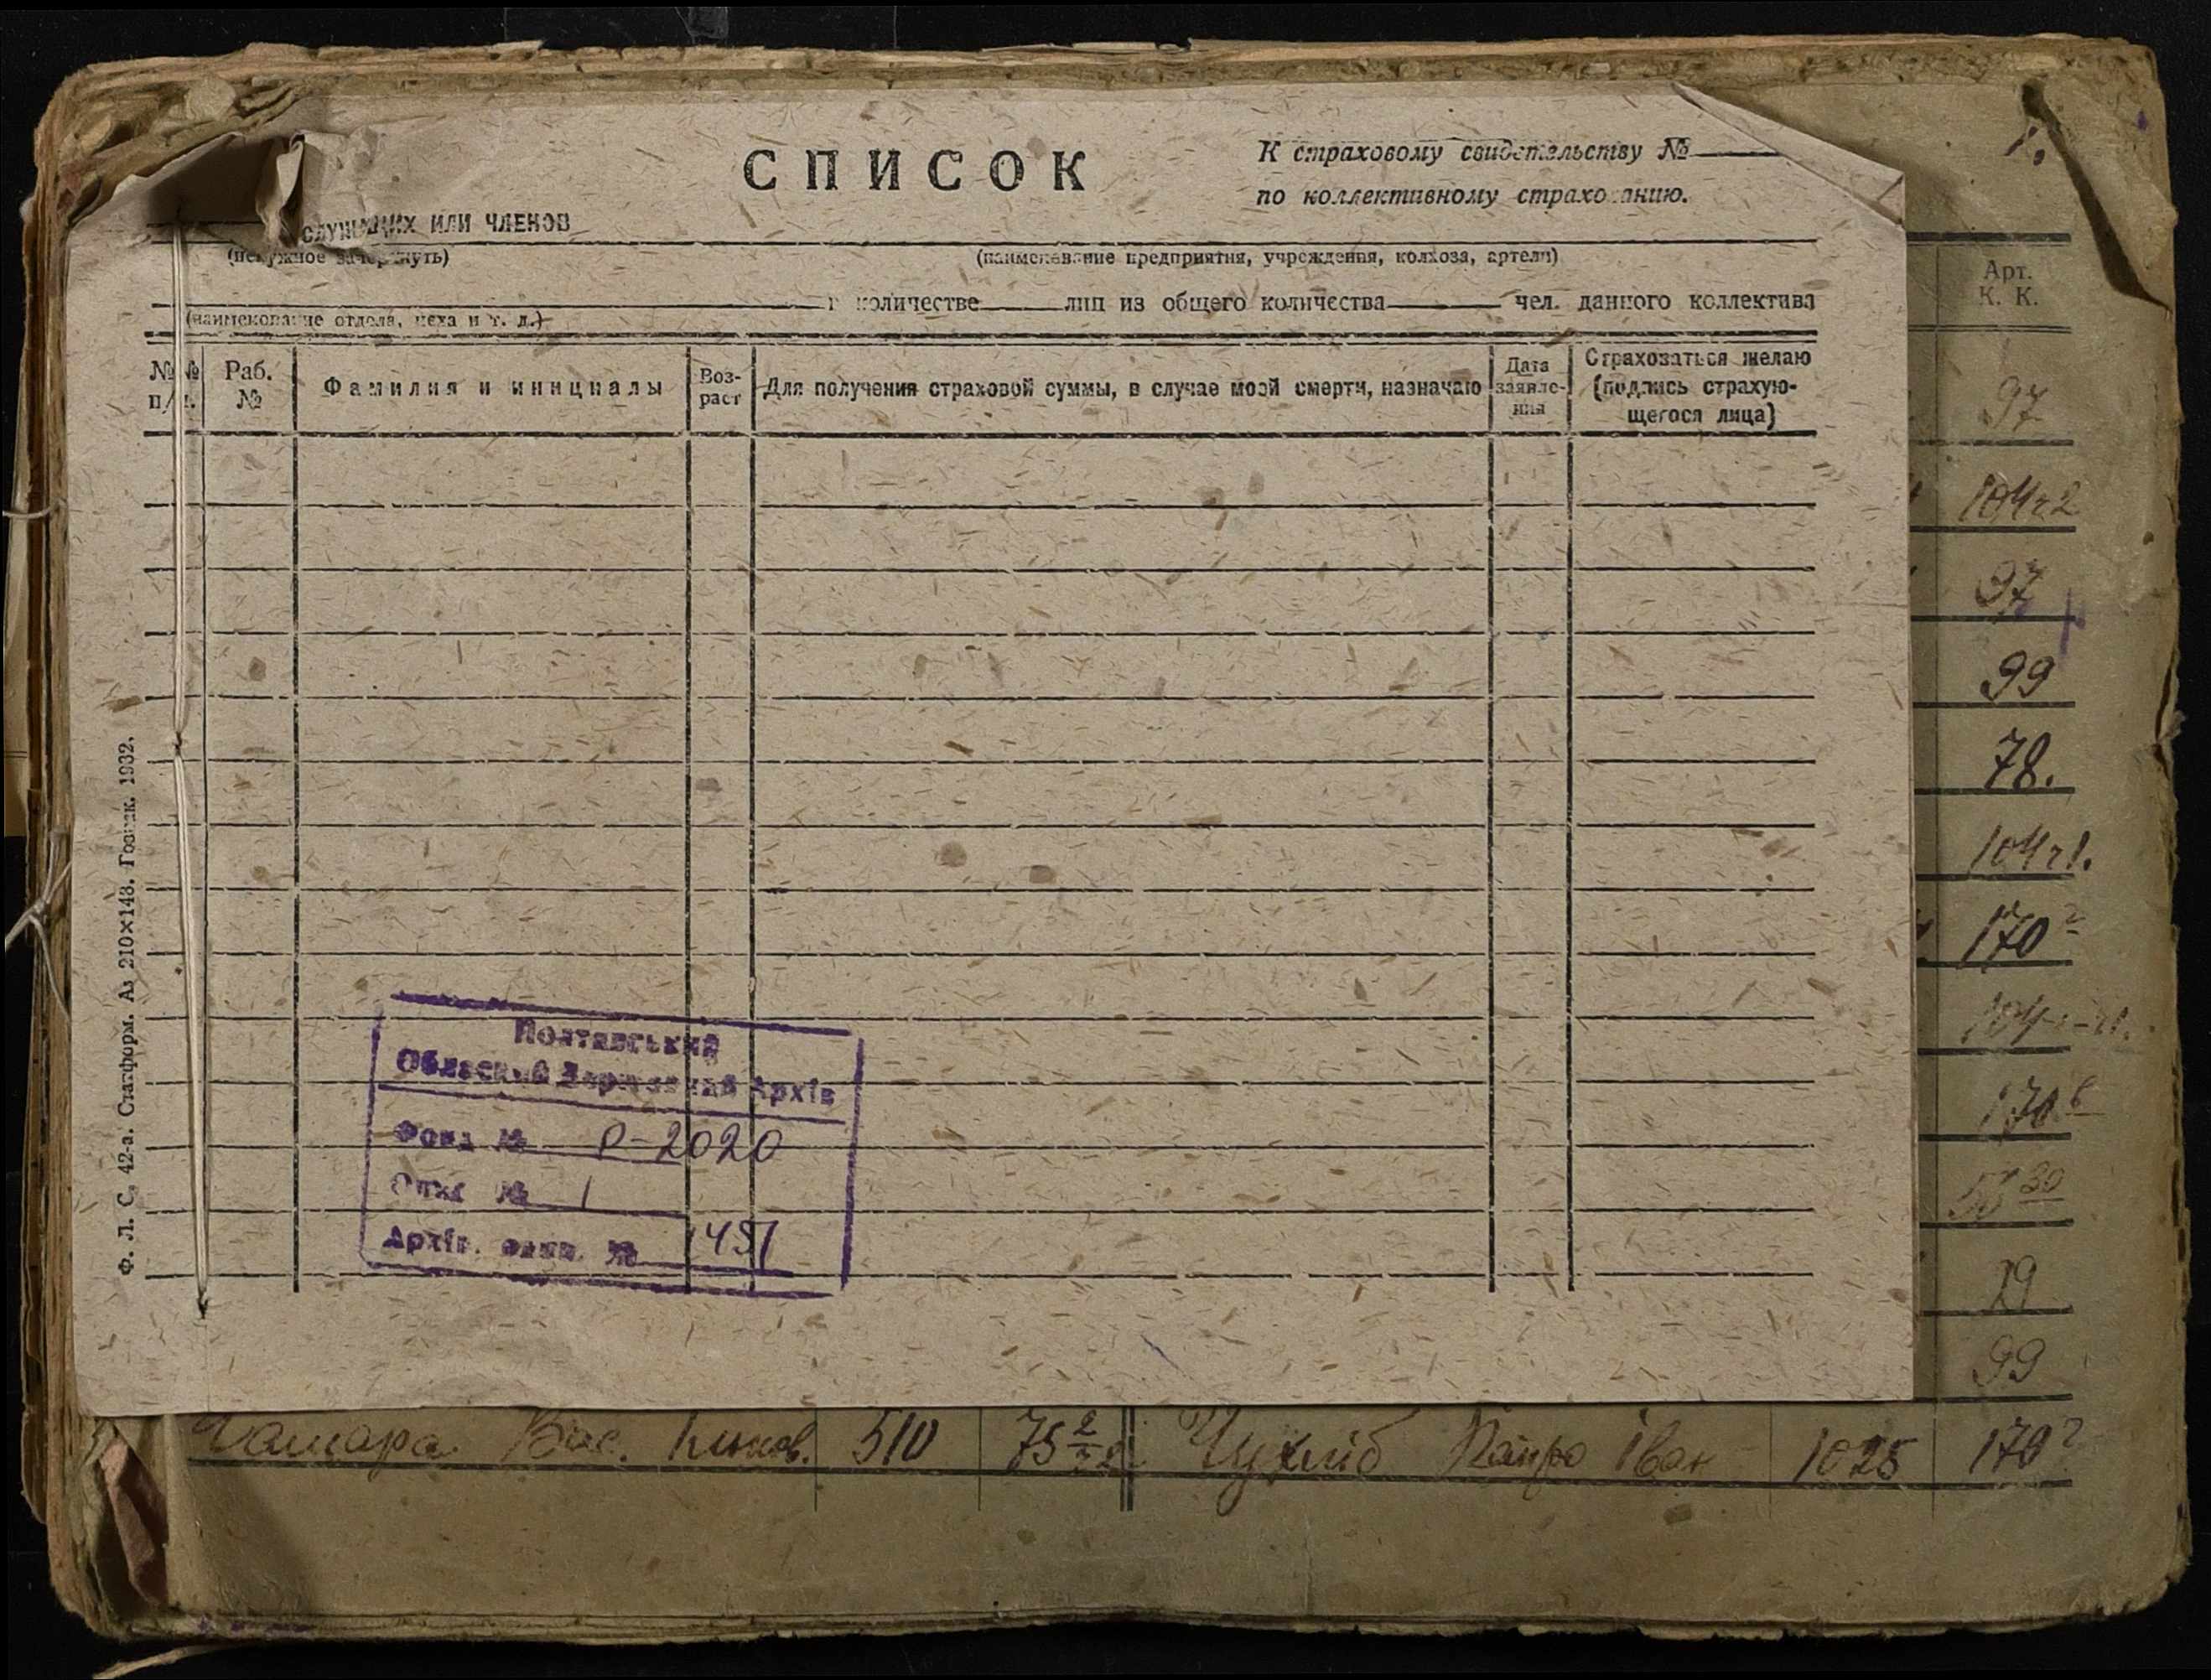 СПИСОК
К страховому свидетельству №
по коллективному страхованию.
СЛУЖАЩИХ ИЛИ ЧЛЕНОВ
(ненужное зачеркнуть)
(наименование предприятия, учреждения, колхоза, артели)
в количестве лиц из общего количества чел. данного коллектива
(наименование отдела, цеха и т. д.)
№№ п/п.
Раб. №
Фамилия и инициалы
Воз-
раст
Для получения страховой суммы, в случае моей смерти, назначаю
Дата
заявле-
ния
Страховаться желаю
(подпись страхую-
щегося лица)
Ф. Л. С. 42-а. Статформ. А5 210×148. Гознак. 1932.
Полтавський
Обласний Державний Архів
Фонд № Р-2020
Опис № 1
Архів. один. № 1451
1.
Арт.
К. К.
97
104 ч 2
97
99
78.
104 ч 1.
170
29
99
510 75 Іван 1025 170